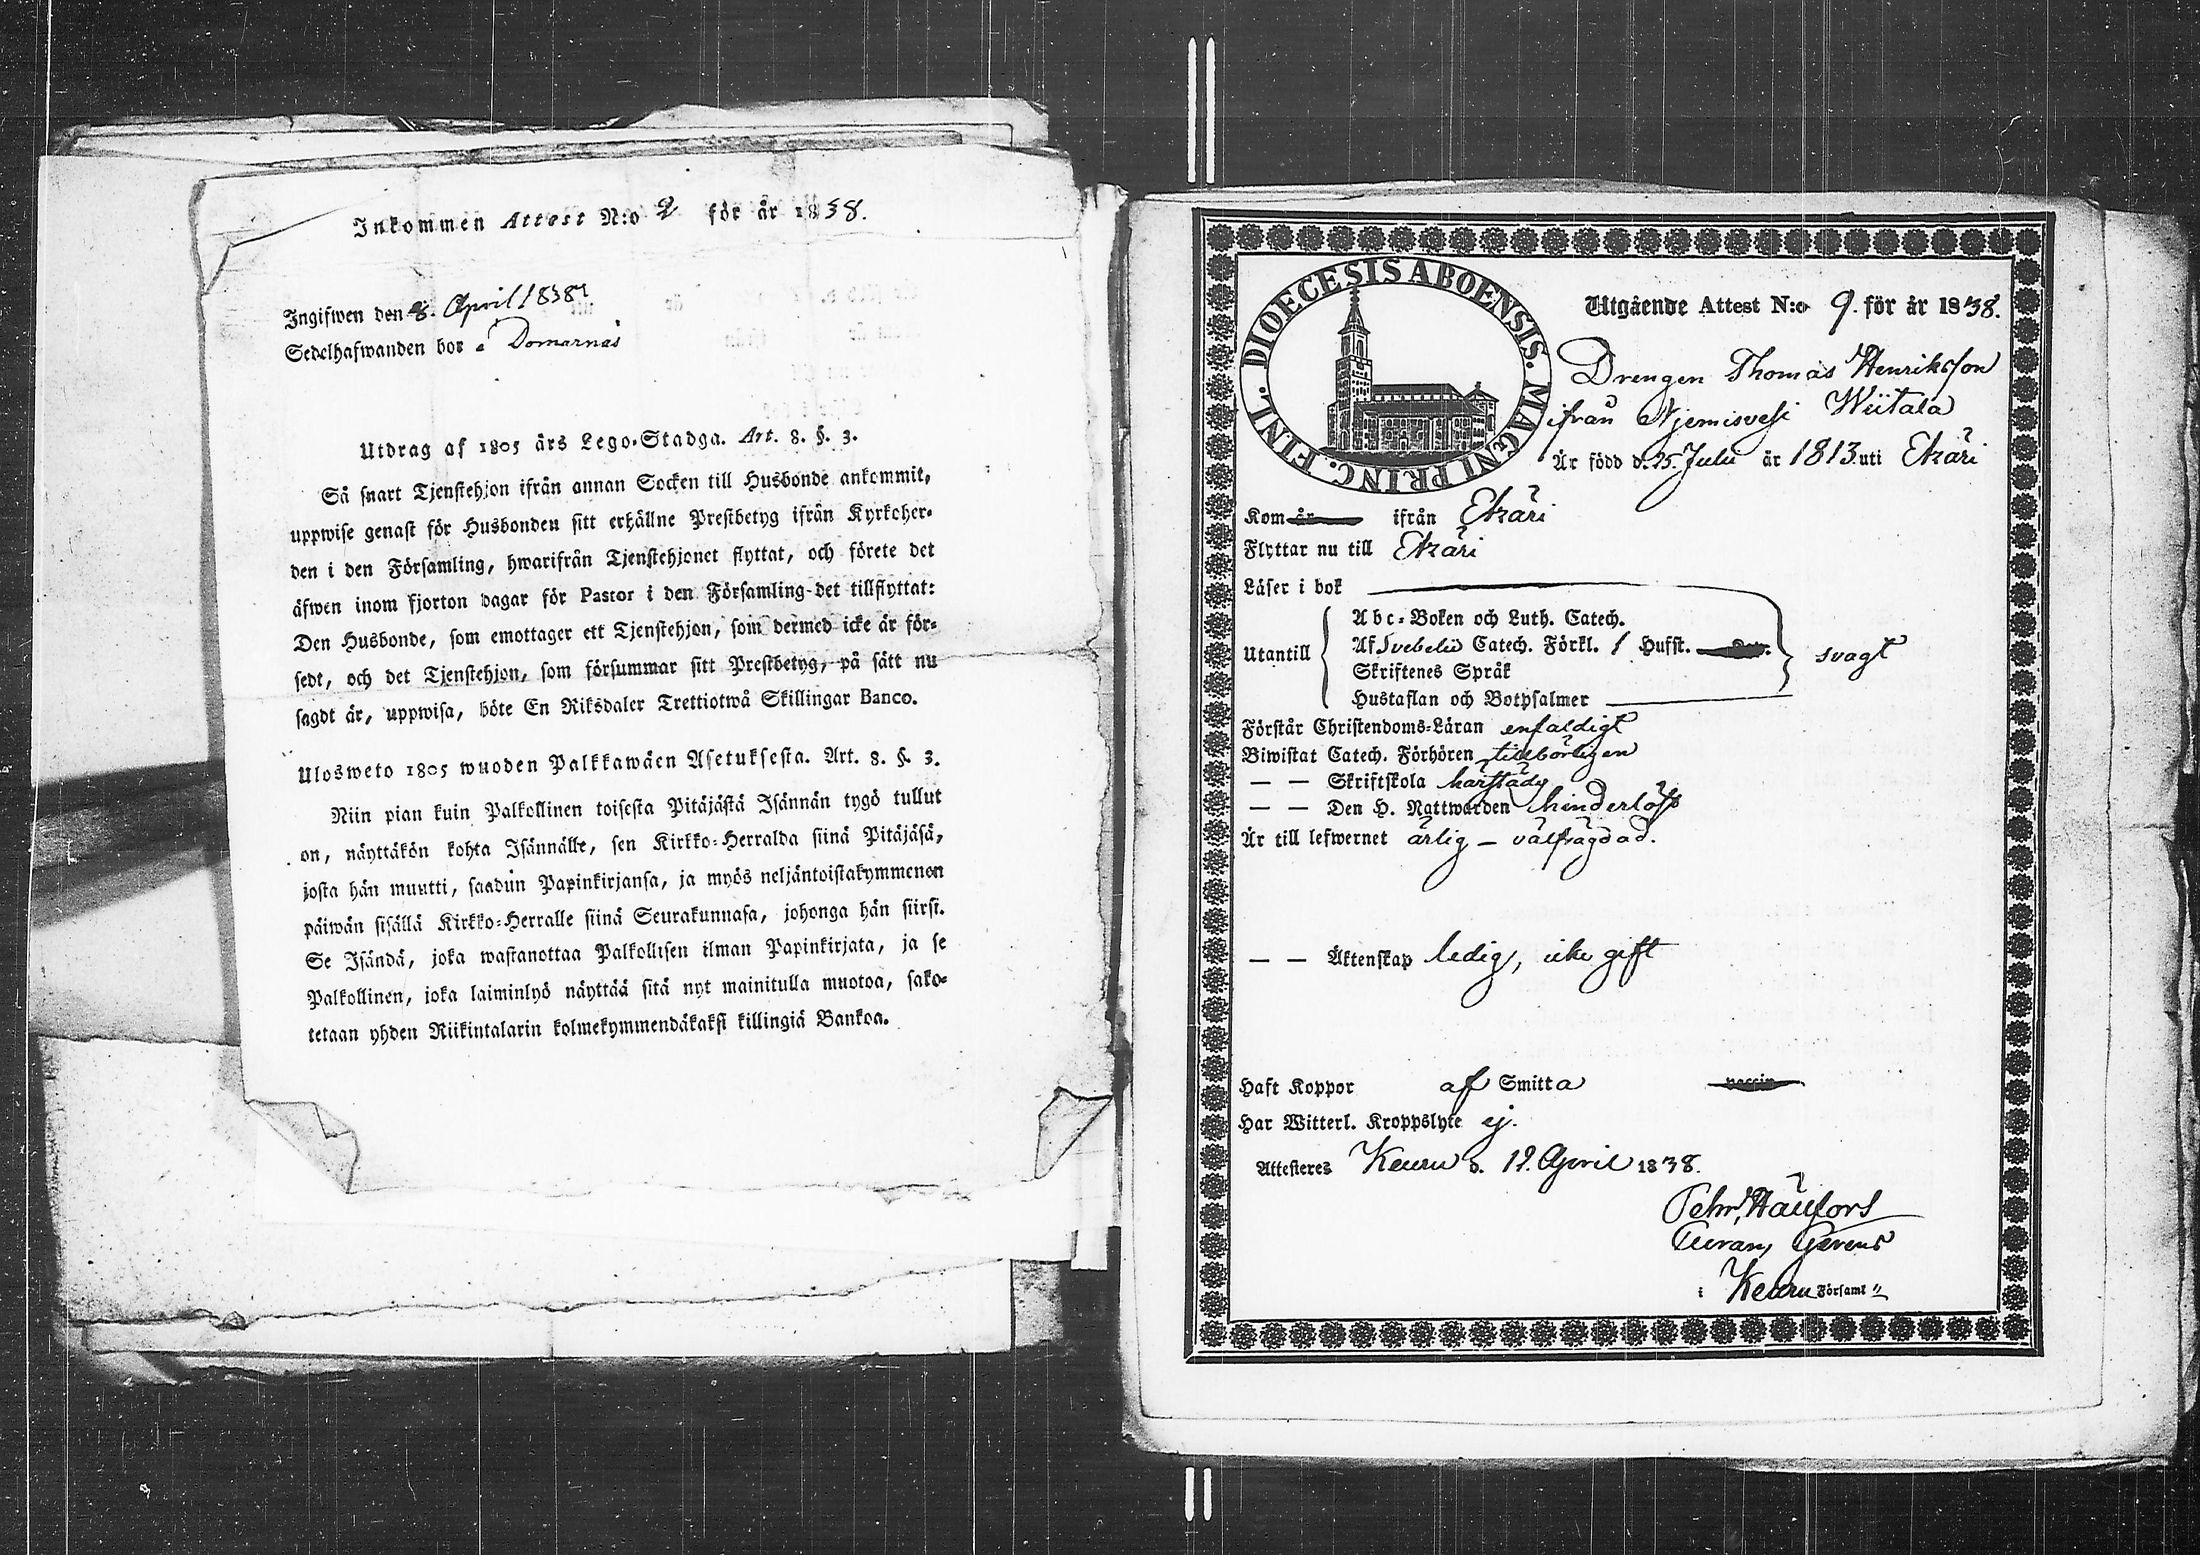 Inkommen Attest N:o 2 för år 1838.
Ingifwen den 8. April 1838
Sedelhafwanden bor i Domarnäs
Utdrag af 1805 års Lego-Stadga. Art. 8. §. 3.
Så snart Tjenstehjon ifrån annan Socken till Husbonde ankommit,
uppwise genast för Husbonden sitt erhållne Prestbetyg ifrån Kyrkoher-
den i den Församling, hwarifrån Tjenstehjonet flyttat, och förete det
äfwen inom fjorton dagar för Pastor i den Församling det tillflyttat:
Den Husbonde, som emottager ett Tjenstehjon, som dermed icke är för-
sedt, och det Tjenstehjon, som försummar sitt Prestbetyg, på sätt nu
sagdt är, uppwisa, böte En Riksdaler Trettiotwå Skillingar Banco.
Ulosweto 1805 wuoden Palkkawäen Asetuksesta. Art. 8. §. 3.
Niin pian kuin Palkollinen toisesta Pitäjästä Isännän tygö tullut
on, näyttäkön kohta Isännälle, sen Kirkko-Herralda siinä Pitäjäsä,
josta hän muutti, saadun Papinkirjansa, ja myös neljäntoistakymmenen
päiwän sisällä Kirkko-Herralle siinä Seurakunnasa, johonga hän siirsi.
Se Isändä, joka wastanottaa Palkollisen ilman Papinkirjata, ja se
Palkollinen, joka laiminlyö näyttää sitä nyt mainitulla muotoa, sako-
tetaan yhden Riikintalarin kolmekymmendäkaksi killingiä Bankoa.
DIOECESIS ABOENSIS. MAGNI PRINC. FINL.
Utgående Attest N:o 9. för år 1838.
Drengen Thomas Henriksson
ifrån Njemisvesi Wiitala
Är född d. 25. Julii år 1813 uti Etzäri
Kom år ifrån Etzäri
Flyttar nu till Etzäri
Läser i bok
Utantill
Abc-Boken och Luth. Catech.
Af Svebelii Catech. Förkl. 1 Hufst.
Skriftenes Språk
Hustaflan och Botpsalmer
svagt
Förstår Christendoms-Läran enfaldigt
Biwistat Catech. Förhören tillbörligen
— — Skriftskola härstädes
— — Den H. Nattwarden hinderlös
Är till lefwernet ärlig — välfrägdad.
— — Äktenskap ledig, icke gift
Haft Koppor af Smitta
Har Witterl. Kroppslyte ej.
Attesteres Keuru d. 12. April 1838.
Pehr
i Keuru Församl